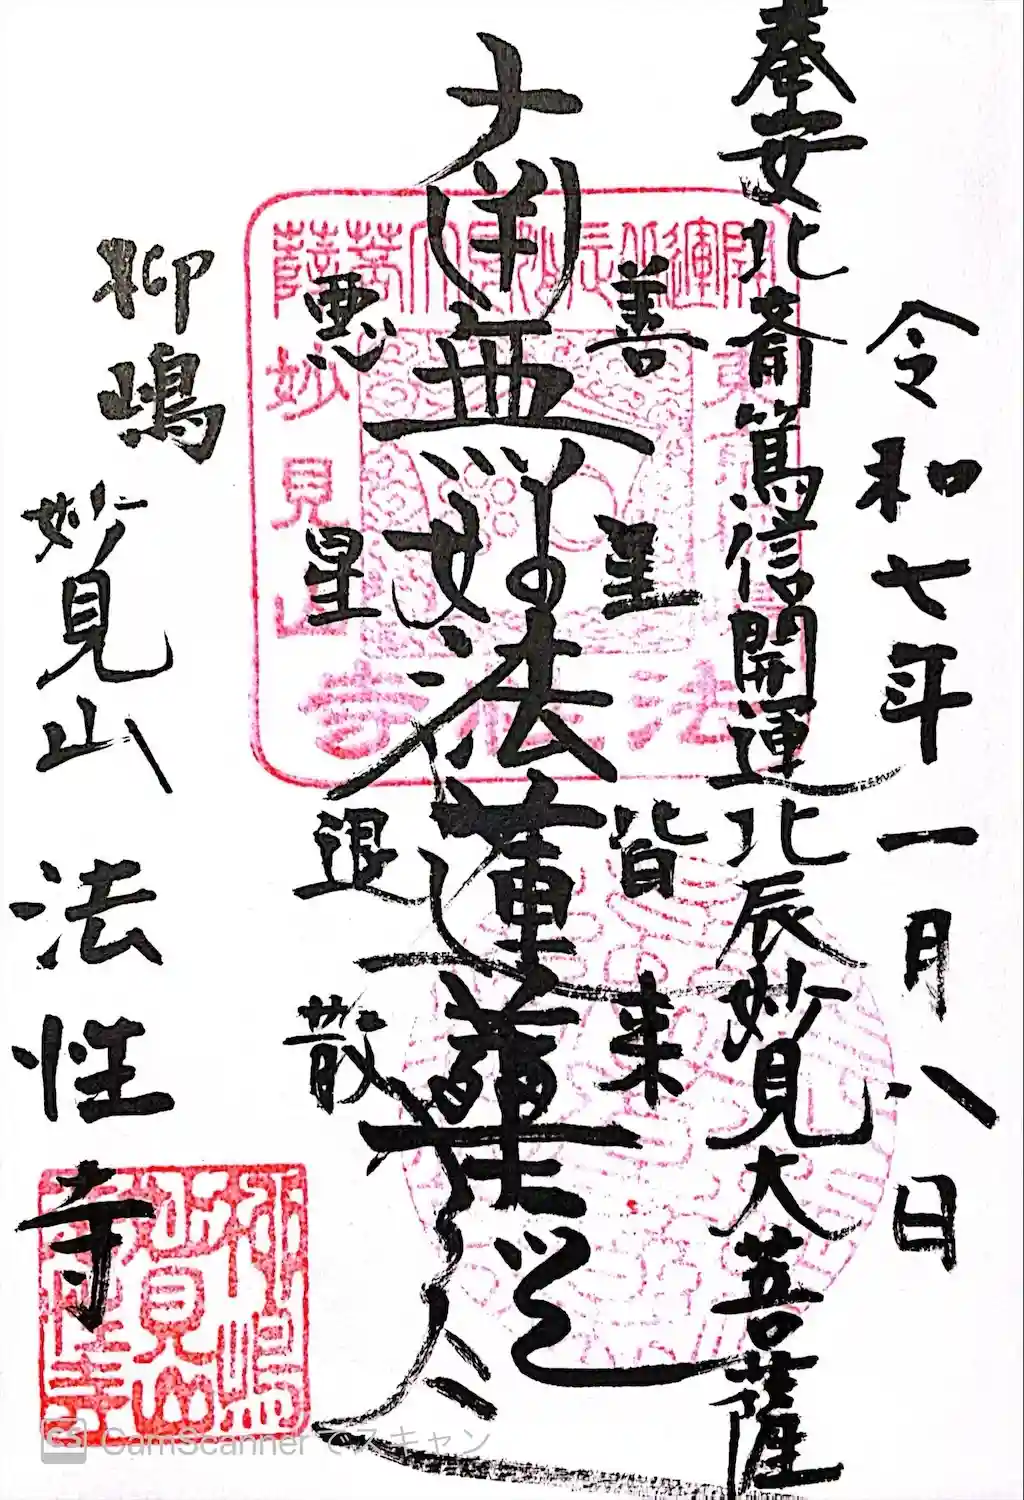 令和七年一月八日
奉安北斎篤信開運北辰妙見大菩薩
善星皆来
南無妙法蓮華経
悪星退散
柳嶋
妙見山
法性寺
開運北辰妙見大菩薩
妙見山
法性寺
柳嶋
妙見山
法性寺
CamScanner でスキャン